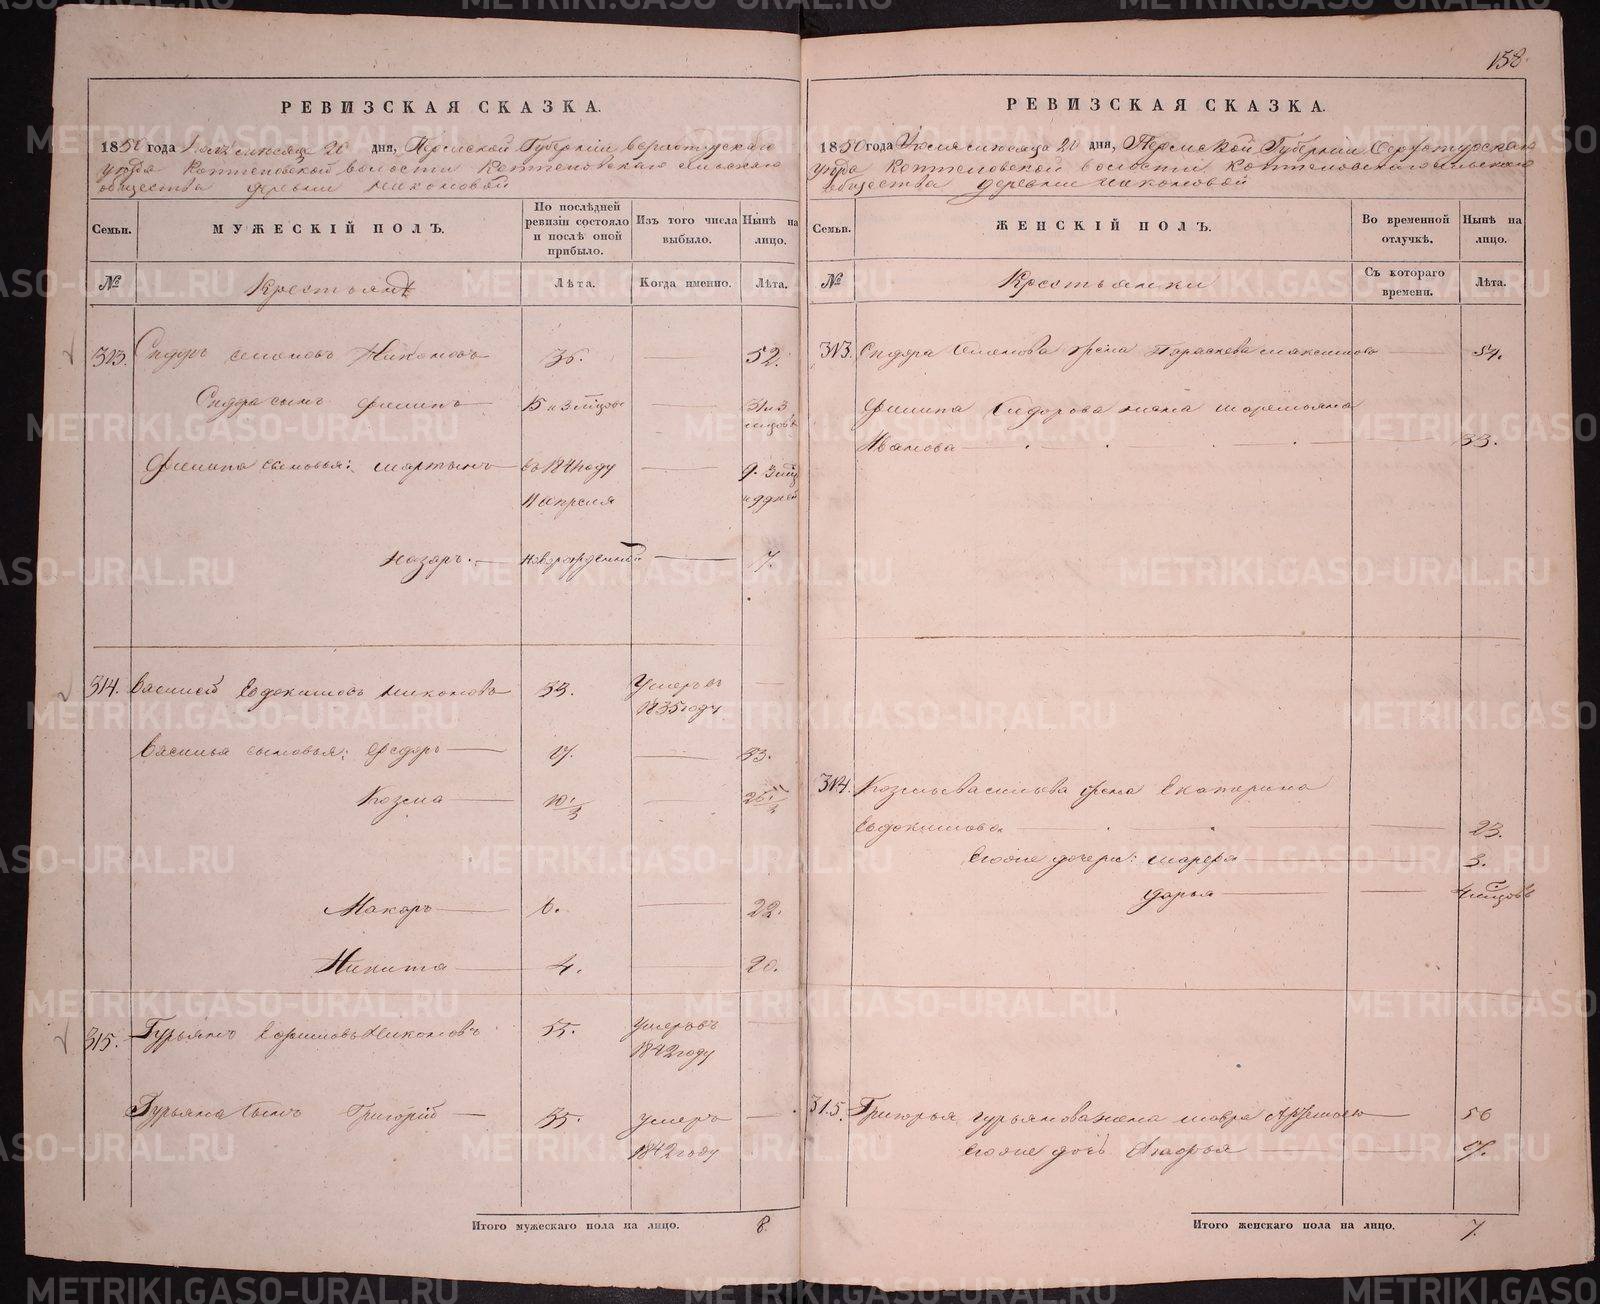 158.
РЕВИЗСКАЯ СКАЗКА.
1850 года Июля месяца 20 дня, Пермской Губернии Верхотурскаго
уезда Коптеловской волости Коптеловскаго сельскаго
общества деревни Никоновой
Семьи.
МУЖЕСКІЙ ПОЛЪ.
По послѣдней ревизіи состояло и послѣ оной прибыло.
Изъ того числа выбыло.
Нынѣ на лицо.
№
Крестьяне
Лѣта.
Когда именно.
Лѣта.
313 Сидоръ Семеновъ Никоновъ 36. 52.
Сидора сынъ Филипъ 15 и 3 мѣсяц 31 и 3
Филипа сыновья: Мартынъ въ 1841 году 9. 3 мѣс
11 апреля и 9 дней
Назаръ. новорожденный 7.
314. Василей Евдокимовъ Никоновъ 53. Умеръ въ
1835 году
Василья сыновья: Федоръ 17. 33.
Козма
Макаръ 6. 22.
Никита 4. 20.
315. Гурьянъ Ефимовъ Никоновъ 55. Умеръ въ
1842 году
Гурьяна сынъ Григорій 35. умеръ
1842 году
Итого мужескаго пола на лицо. 8.
РЕВИЗСКАЯ СКАЗКА.
1850 года Июля месяца 20 дня, Пермской Губернии Верхотурскаго
уезда Коптеловской волости Коптеловскаго сельскаго
общества деревни Никоновой
Семьи.
ЖЕНСКІЙ ПОЛЪ.
Во временной отлучкѣ.
Нынѣ на лицо.
№
Крестьянки
Съ котораго времени.
Лѣта.
313. Сидора Семенова жена Параскева Максимова 54.
Филипа Сидорова жена Маремьяна
Иванова 33.
314. Козмы Васильева жена Екатерина
Евдокимова. 23.
Ево дочери: Марфа 3.
Дарья 4 мѣсяцовъ
315. Григорья Гурьянова жена Мавра 56
дочь 17.
Итого женскаго пола на лицо. 7.
METRIKI.GASO-URAL.RU